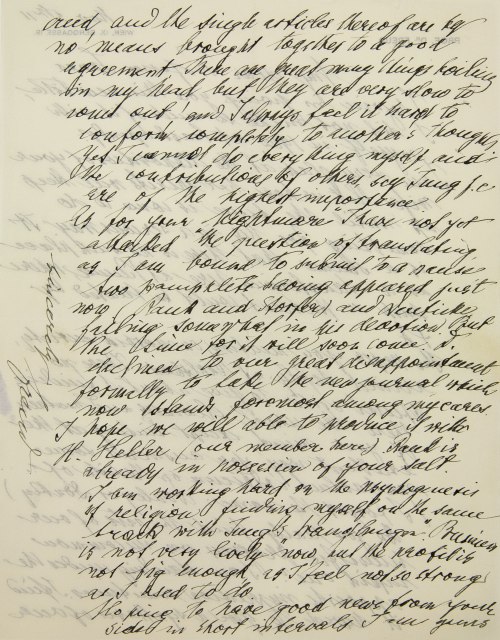 and and the single articles thereof are by
no means brought together to a good
agreement. There are great many things boiling
in my head but they are very slow to
come out and I always feel it hard to
conform completely to another's thought.
Yet I cannot do everything myself and
the contributions of others, say Jung f.e.
are of the highest importance
As for your Nightmare I have not yet
attacked the question of translating
as I am bound to submit to a pause
two pamphlets having appeared just
now (Rank and Storfer) and Deuticke
falling somewhat in his devotion. But
the time for it will soon come. D.
declined to our great disappointment
formally to take the new journal which
now stands foremost among my cares.
I hope we will able to produce it with
H. Heller (our member here) Rank is
already in possession of your Salt
I am working hard on the Psychogenesis
of religion finding myself on the same
track with Jung's Wandlungen. Business
is not very lively now, but the profit is
not big enough as I feel not so strong
as I used to do.
Hoping to have good news from your
side in short intervals I am yours
sincerely
Freud
WIEN, IX. BERGGASSE 19